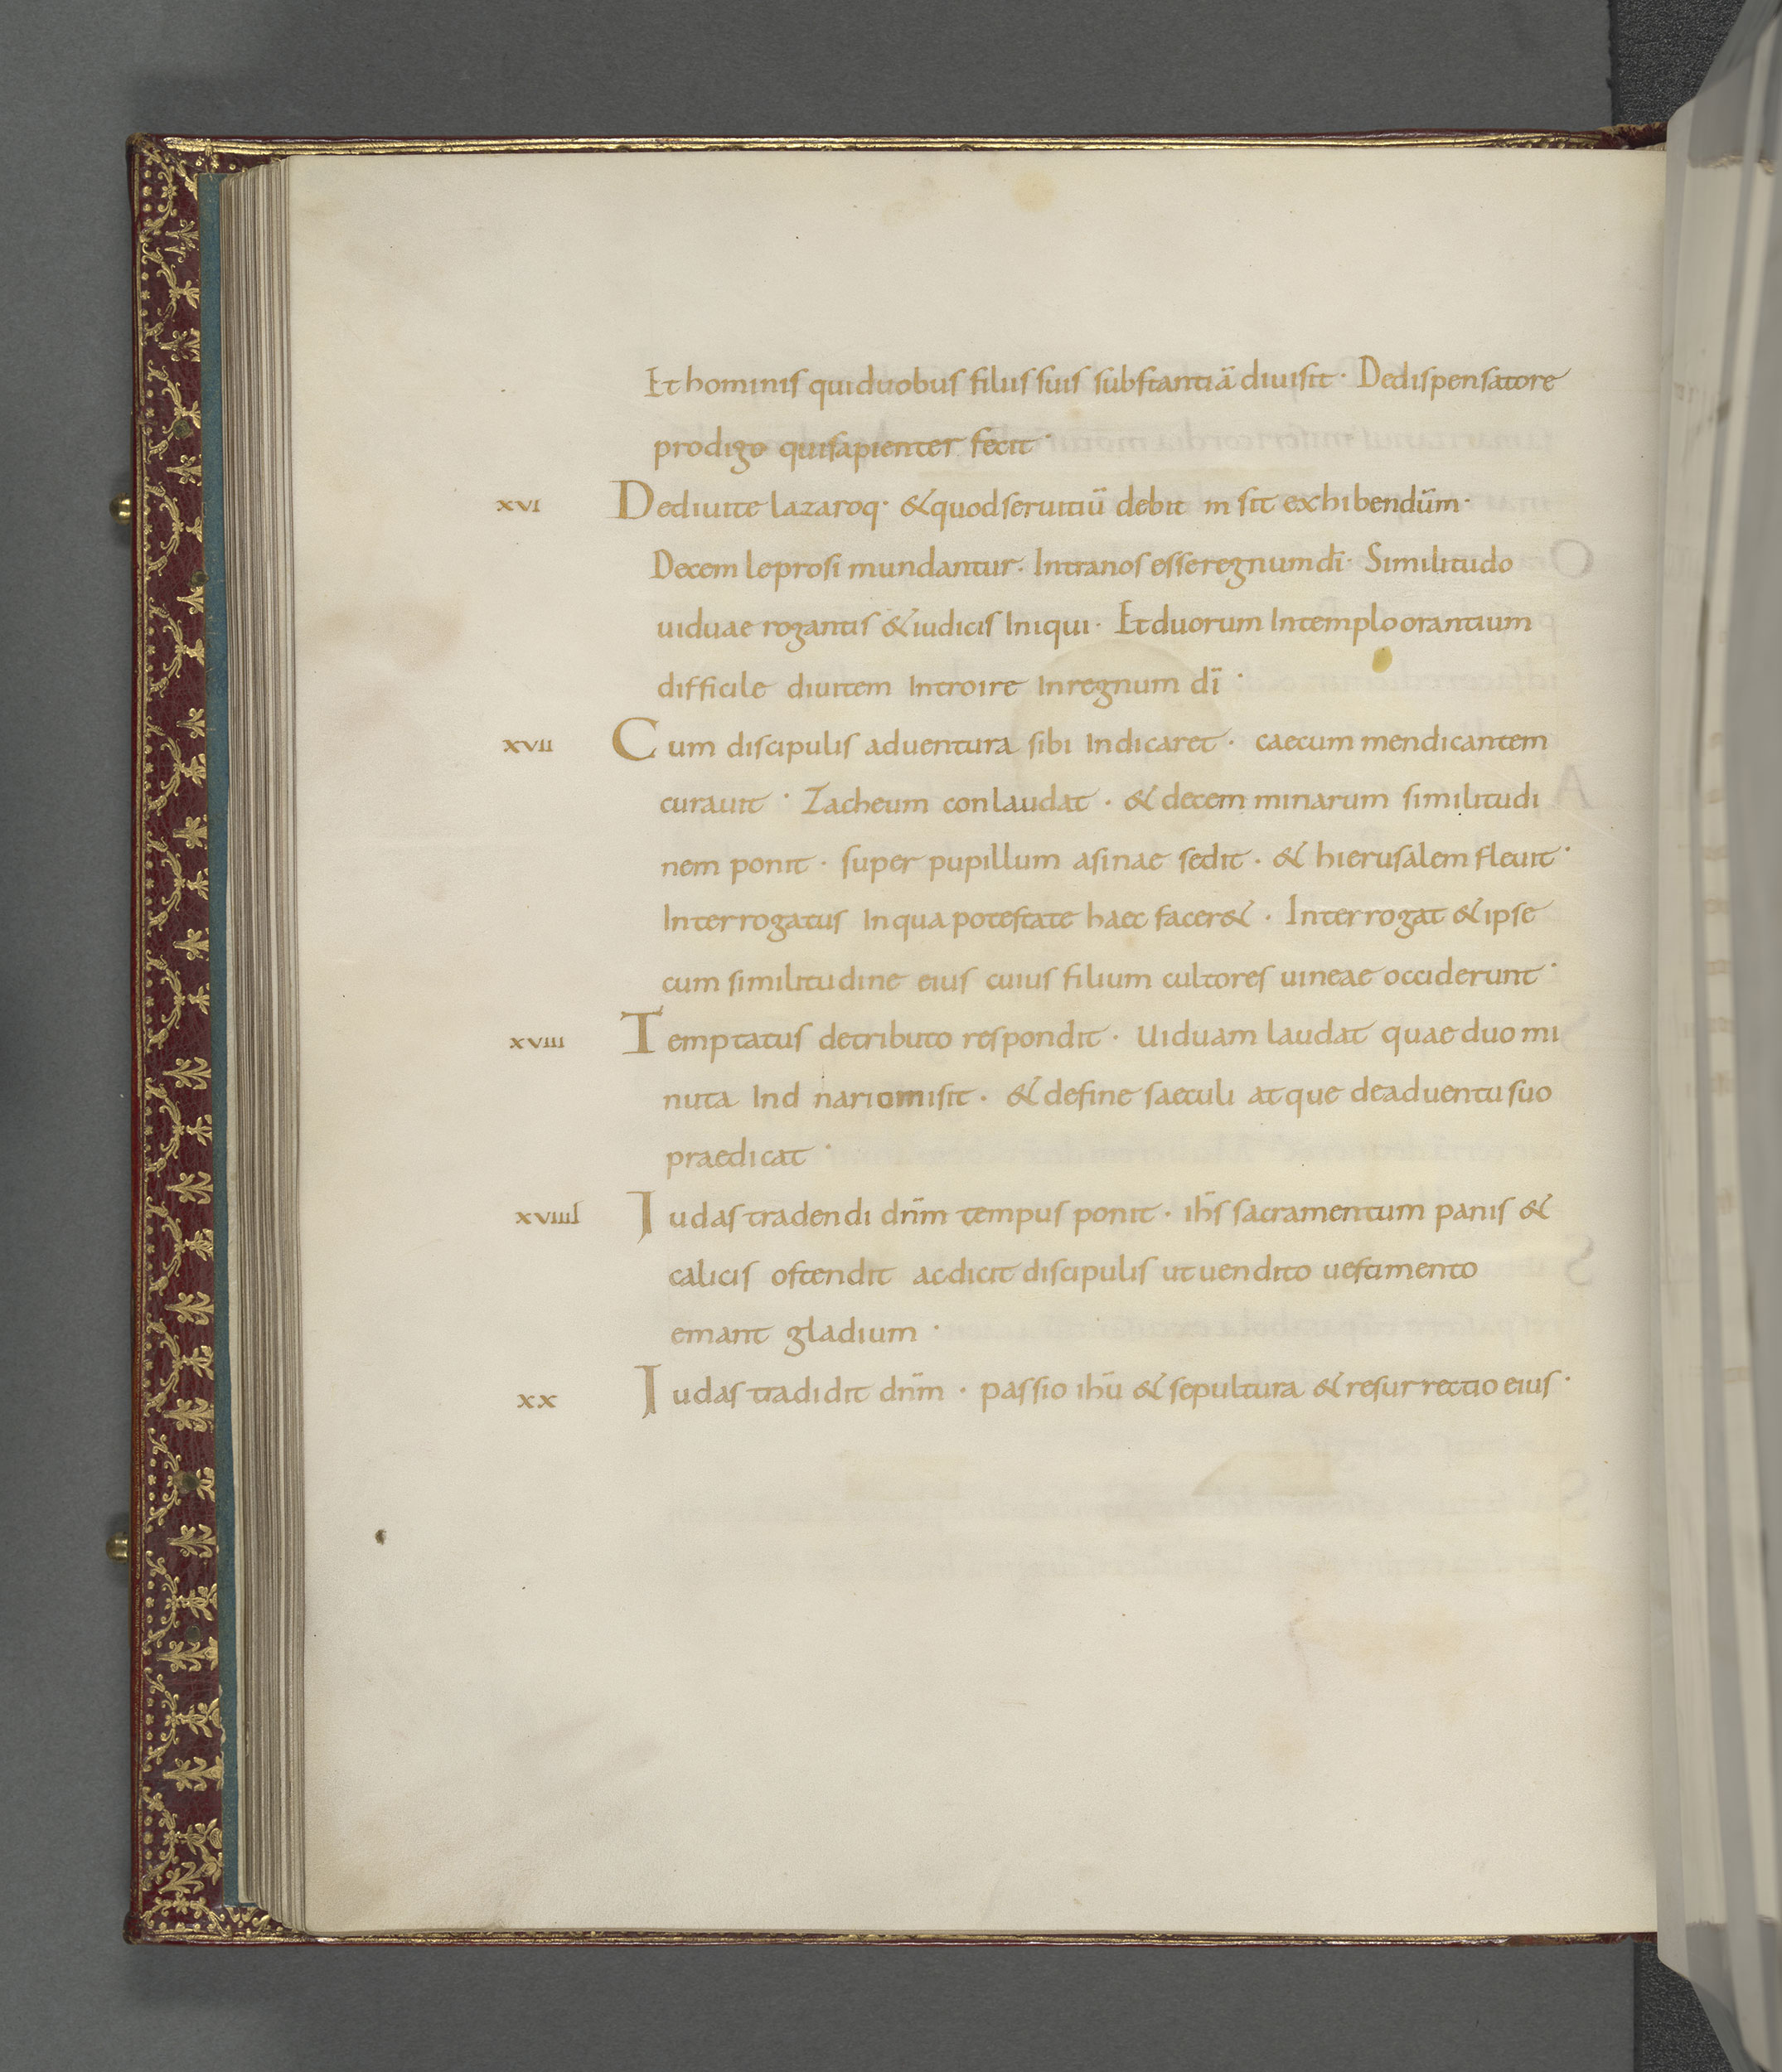 Et hominis qui duobus filiis suis substantiā diuisit · De dispensatore
prodigo qui sapienter fecit ·
xvi De diuite lazaroq· & quod seruitiū debit m sit exhibendūm·
Decem leprosi mundantur · Intra nos esse regnum dī · Similitudo
uiduae rogantis & iudicis Iniqui · Et duorum In templo orantium
difficile diuitem Introire In regnum dī ·
xvii Cum discipulis aduentura sibi Indicaret · caecum mendicantem
curauit · Zacheum conlaudat · & decem minarum similitudi
nem ponit · super pupillum asinae sedit · & hierusalem fleuit ·
Interrogatus In qua potestate haec facer& · Interrogat & ipse
cum similitudine eius cuius filium cultores uineae occiderunt ·
xviii Temptatus de tributo respondit · Uiduam laudat quae duo mi
nuta In d nario misit · & de fine saeculi atque de aduentu suo
praedicat ·
xviiii Iudas tradendi dnm̄ tempus ponit · ihs̄ sacramentum panis &
calicis ostendit ac dicit discipulis ut uendito uestimento
emant gladium ·
xx Iudas tradidit dnm̄ · passio ihū & sepultura & resurrectio eius ·